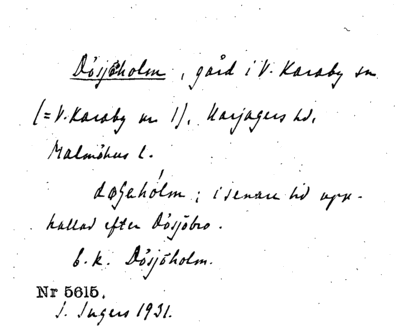 Dösjöholm, gård i V. Karaby sn
(= V. Karaby nr 1), Harjagers hd,
Malmöhus l.
i senare tid upp-
kallad efter Dösjöbro.
b. k. Dösjöholm.
Nr 5615.
S. Ingers 1931.